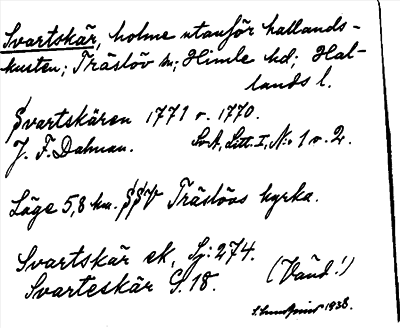 Svartskär, holme utanför hallands-
kusten; Träslöv sn; Himle hd; Hal-
lands l.
Svartskären 1771 o. 1770.
J. F. Dahman. SvA, Litt. I, No 1 o. 2.
Läge 5,8 km. SSV Träslövs kyrka.
Svartskär ek, Sj: 274.
Svarteskär S. 18. (Vänd!)
1938.